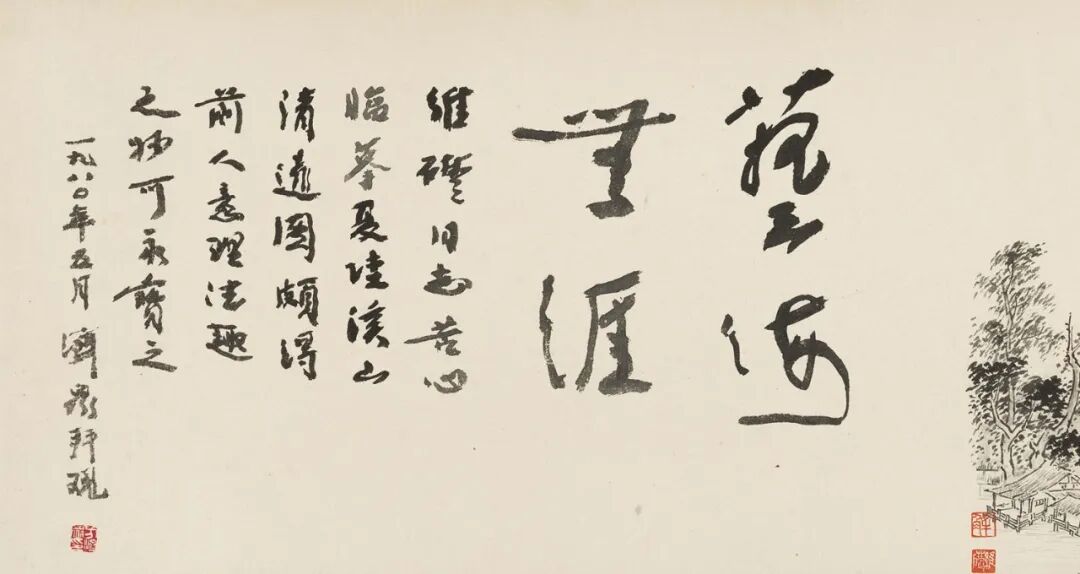 藝海
無涯
維同志苦心
臨摹夏珪溪山
清遠圖頗得
前人意理法趣
之妙可永寶之
一九八〇年五月